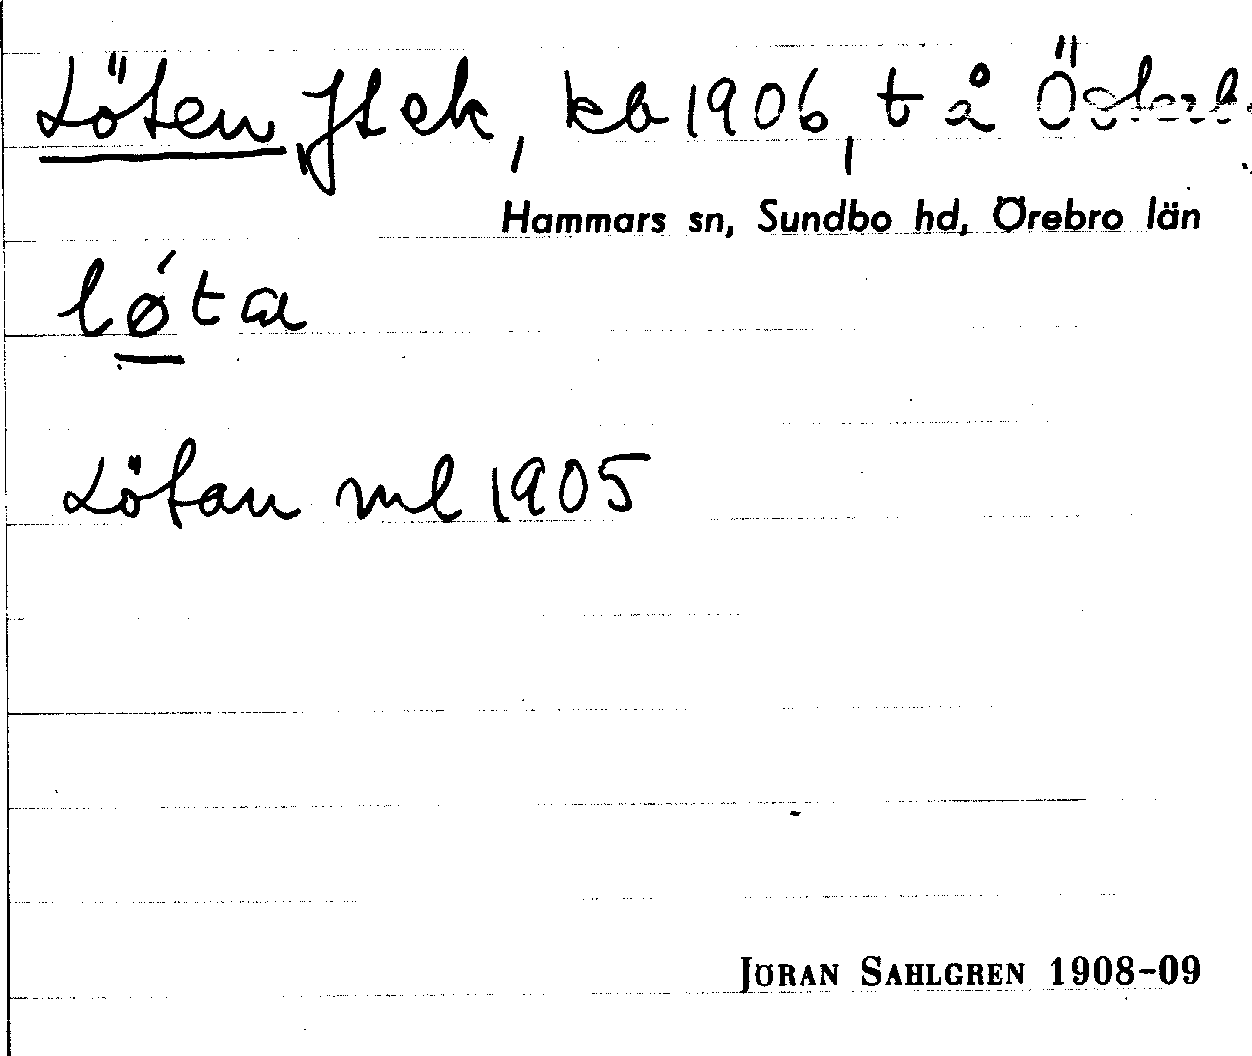 Löten, Jl ek, kb 1906, t å
Hammars sn, Sundbo hd, Örebro län
lø´ta
Lötan ml 1905
JÖRAN SAHLGREN 1908-09